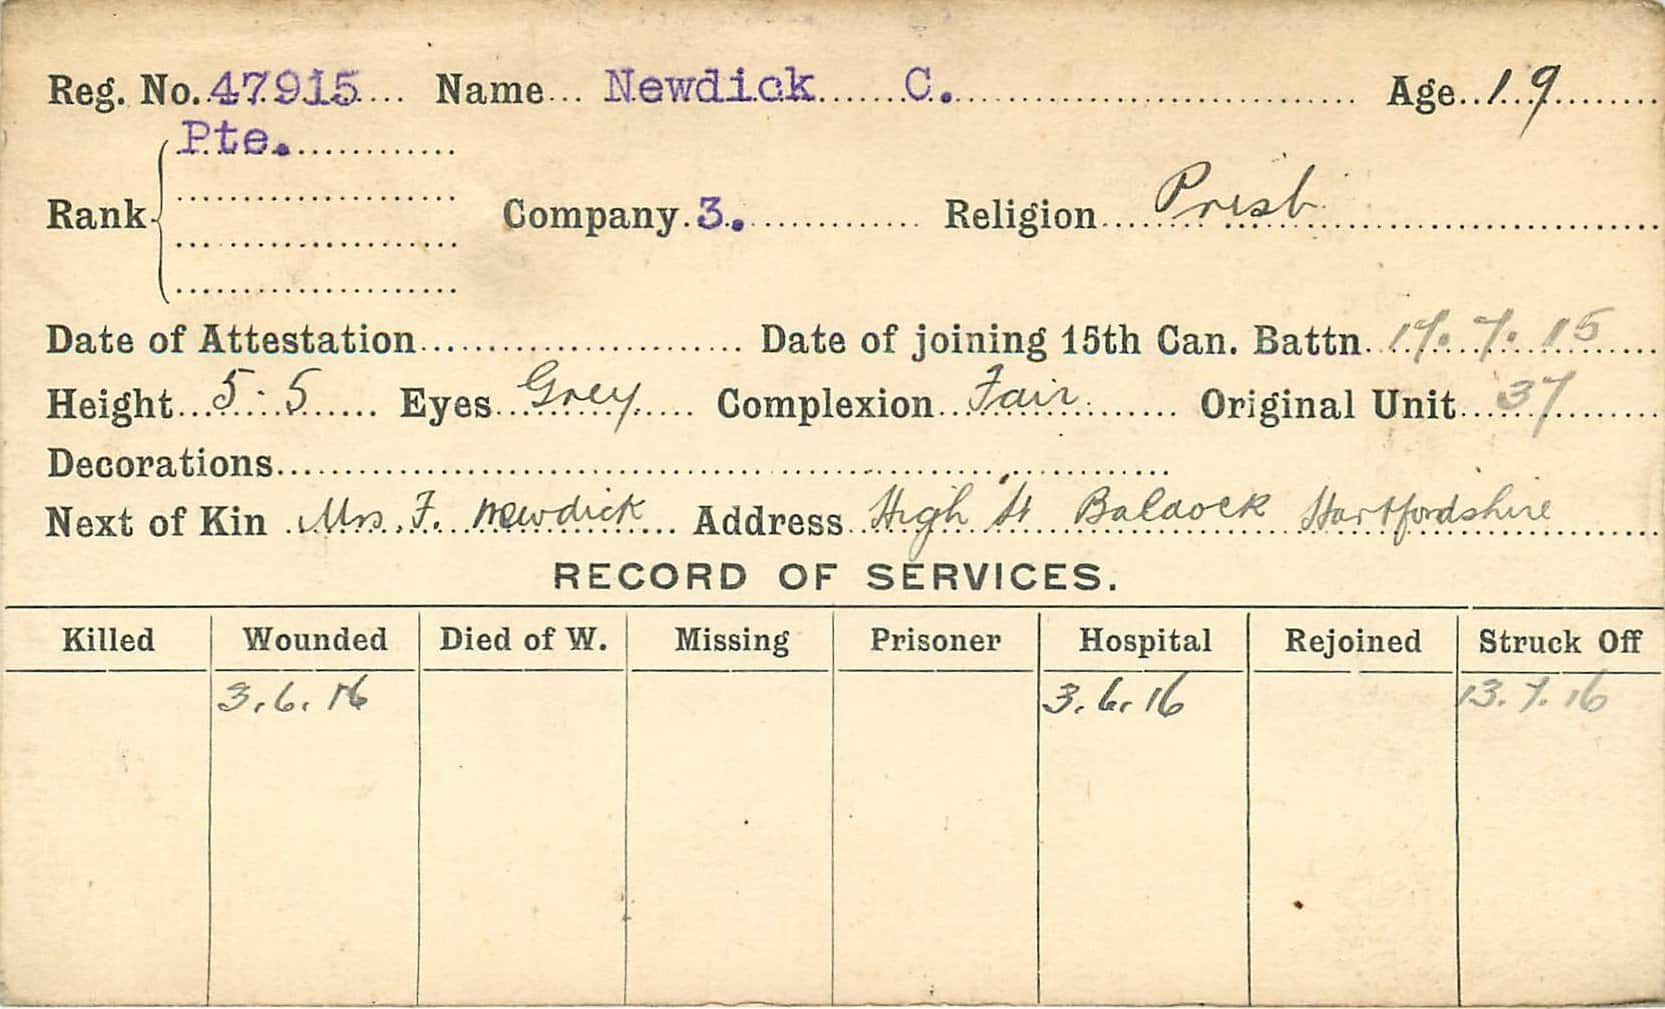 Reg. No. 47915 Name Newdick C. Age 19
Pte.
Rank Company 3. Religion Presb
Date of Attestation Date of joining 15th Can. Battn. 17. 7. 15
Height 5 : 5 Eyes Grey Complexion Fair Original Unit 37
Decorations
Next of Kin Mrs. F. Newdick Address High St Baldock Hartfordshire
RECORD OF SERVICES.
Killed Wounded Died of W. Missing Prisoner Hospital Rejoined Struck Off
3.6.16 3.6.16 13.7.16